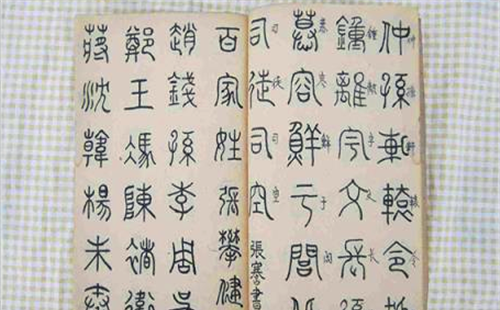 仲孫軒轅令
鍾離宇文長孫
慕容鮮于閭丘
司徒司空
百家姓 張攀
趙錢孫李周吳
鄭王馮陳褚衛
蔣沈韓楊朱秦